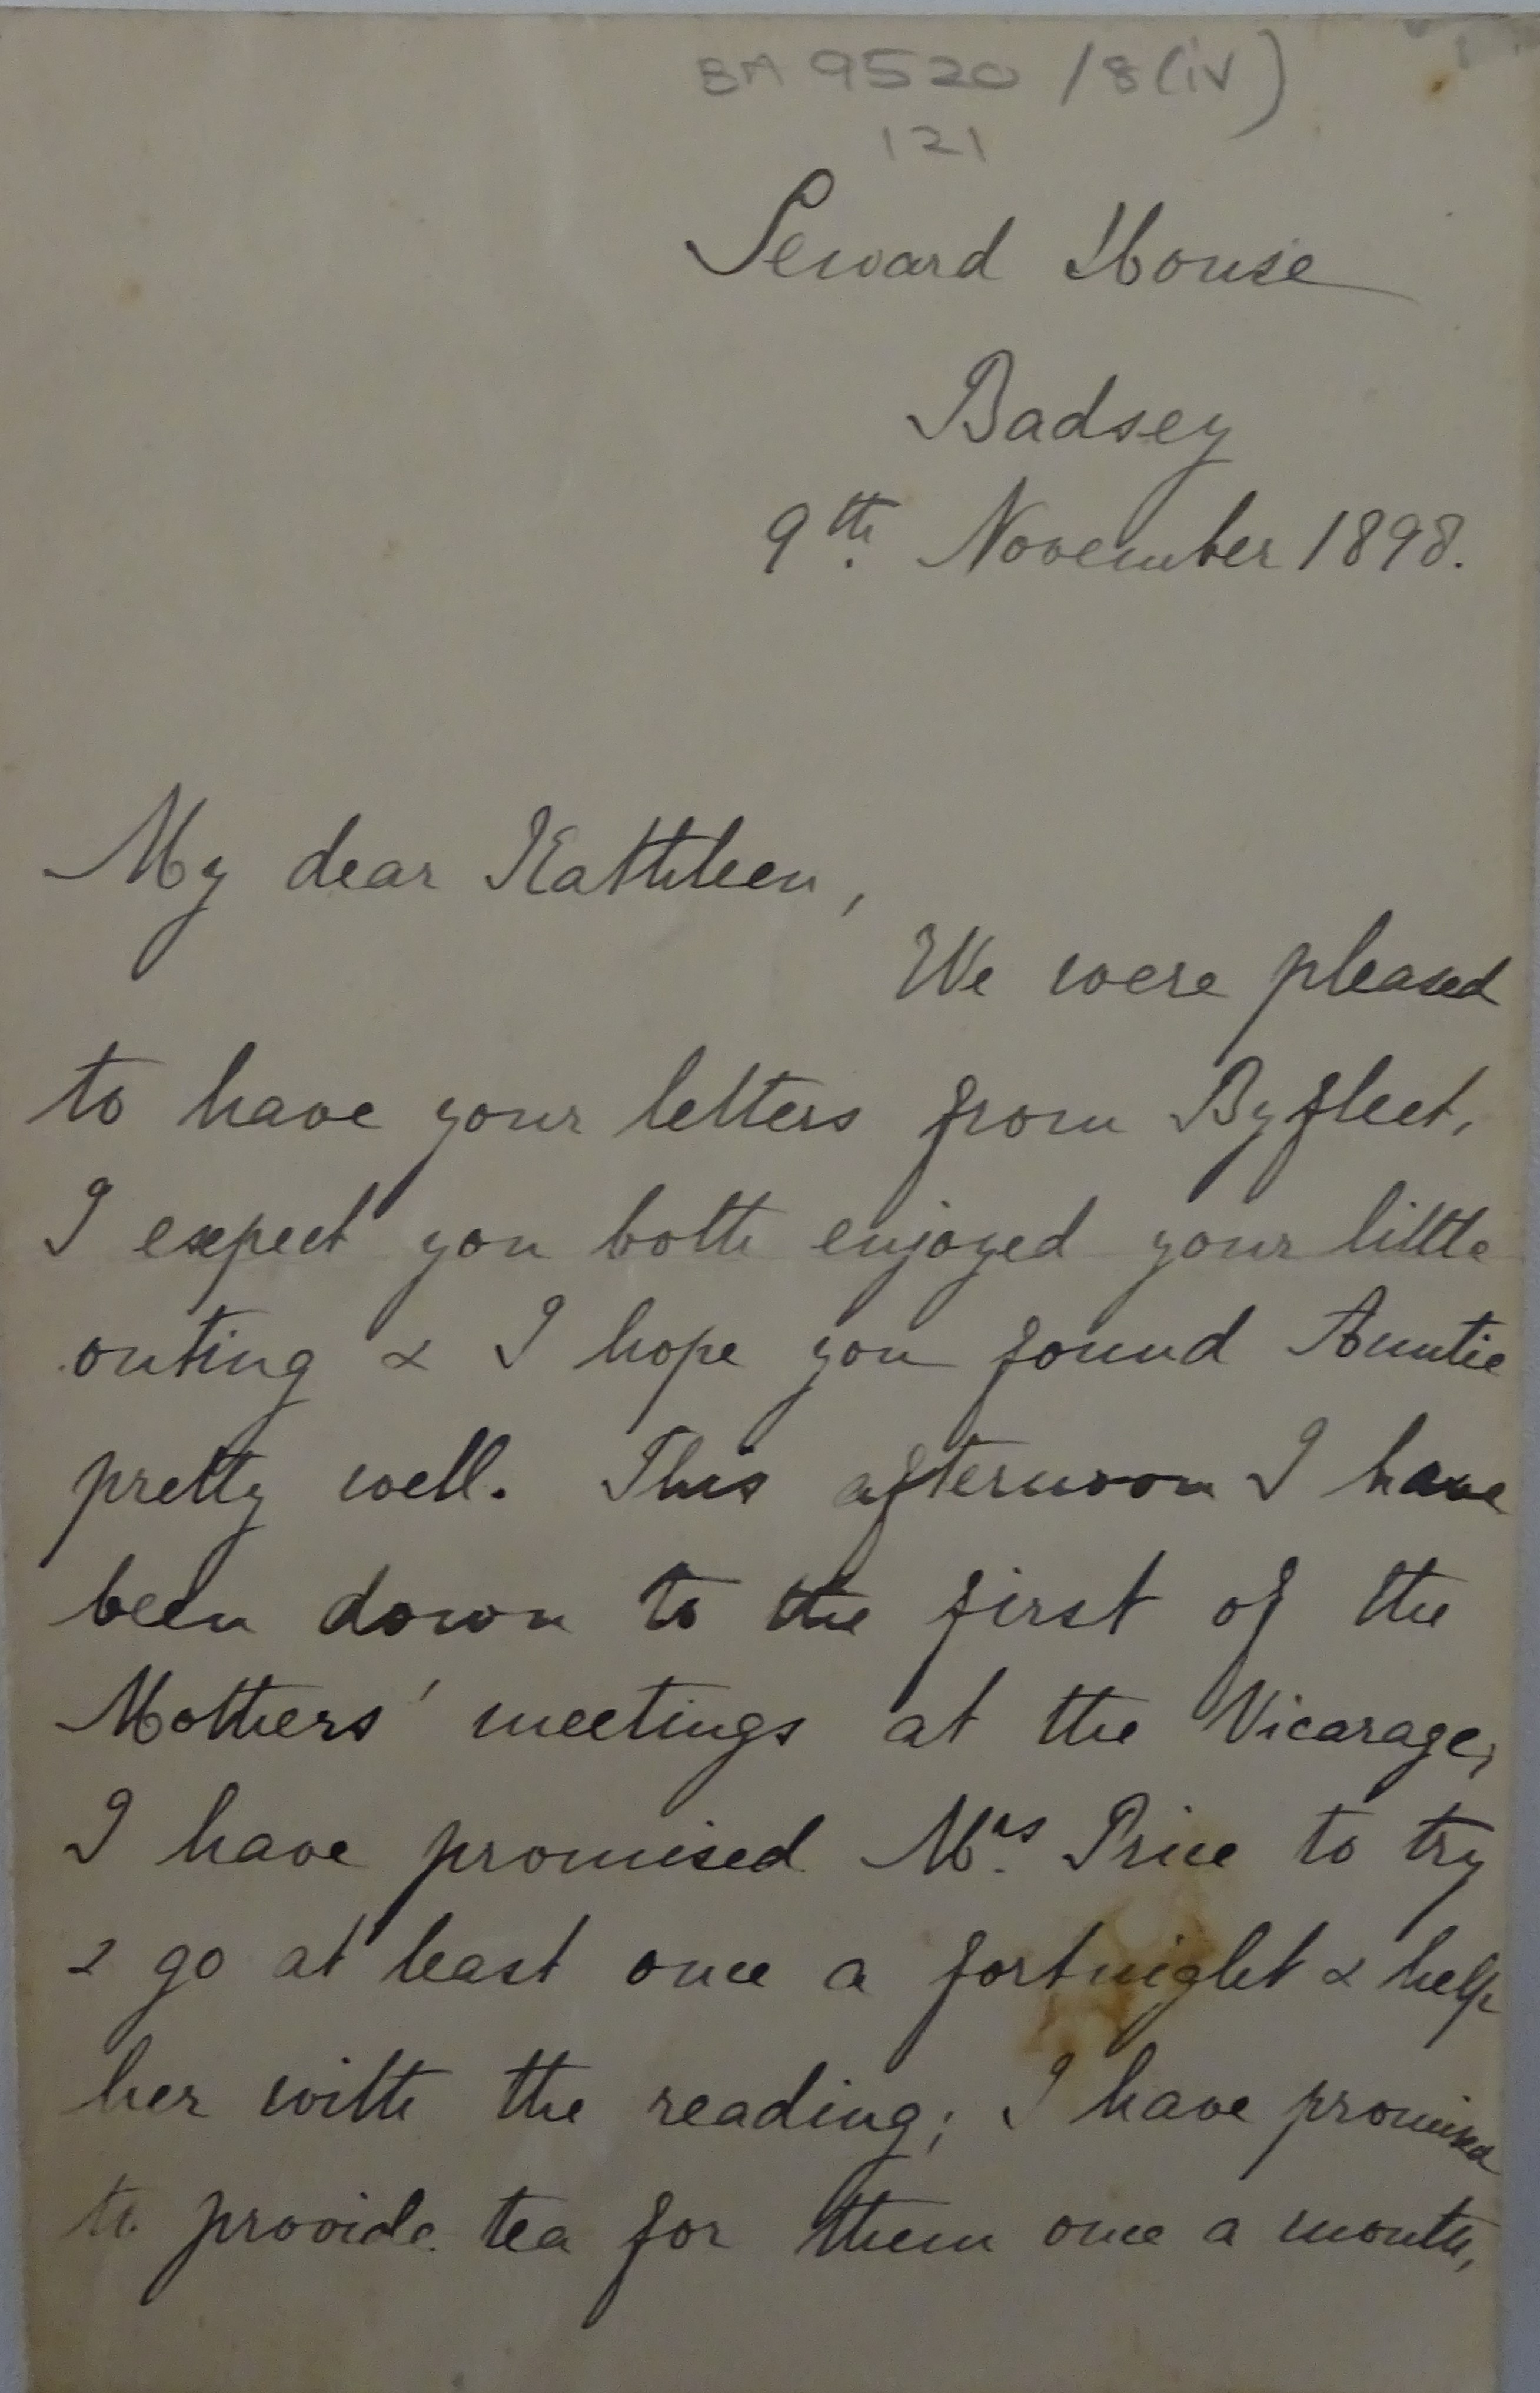 BA 9520 /8(iv)
121
Seward House
Badsey
9th. November 1898.
My dear Kathleen,
We were pleased
to have your letters from Byfleet,
I expect you both enjoyed your little
outing & I hope you found Auntie
pretty well. This afternoon I have
been down to the first of the
Mothers' meetings at the Vicarage,
I have promised Mrs. Price to try
& go at least once a fortnight & help
her with the reading; I have promised
to provide tea for them once a month,